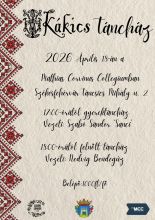 Kákics táncház
2026 Április 18-án a
Mathias Corvinus Collegiumban
Székesfehérvár Táncsics Mihály u. 2
17.00-órától gyerektáncház
Vezeti: Szabó Sándor Sanci
18.00-órától felnőtt táncház
Vezeti:
Belépő: 1000 Ft/fő
MCC